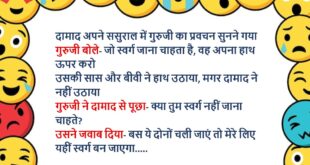 दामाद अपने ससुराल में गुरुजी का प्रवचन सुनने गया
गुरुजी बोले- जो स्वर्ग जाना चाहता है, वह अपना हाथ
ऊपर करो
उसकी सास और बीवी ने हाथ उठाया, मगर दामाद ने
नहीं उठाया
गुरुजी ने दामाद से पूछा- क्या तुम स्वर्ग नहीं जाना
चाहते?
उसने जवाब दिया- बस ये दोनों चली जाएं तो मेरे लिए
यहीं स्वर्ग बन जाएगा.....